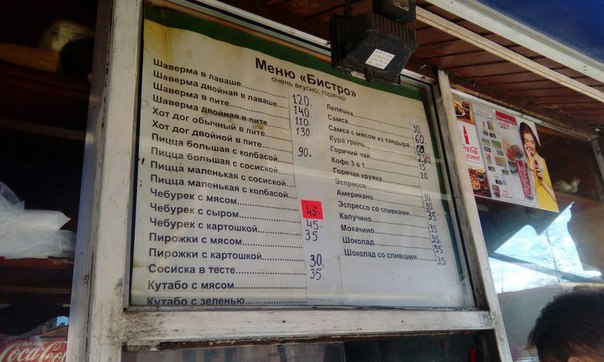 Меню «Бистро»
очень вкусно, горячий
Шаверма в лаваше 120.
Шаверма двойная в лаваше 140.
Шаверма в пите 110.
Шаверма двойная в пите 130.
Хот дог обычный в пите
Хот дог двойной в пите 90.
Пицца большая с колбасой
Пицца большая с сосиской
Пицца маленькая с сосиской
Пицца маленькая с колбасой
Чебурек с мясом 45.
Чебурек с сыром 45.
Чебурек с картошкой 35
Пирожки с мясом
Пирожки с картошкой 30
Сосиска в тесте 35
Кутабо с мясом
Кутабо с зеленью
Лепешка
Самса 30
Самса с мясом из тандыра 60
Кура гриль
Горячий чай 15
Кофе 3 в 1 20
Горячая кружка
Эспрессо
Американо 30
Эспрессо со сливками 30
Капучино 35
Мокачино 35
Шоколад 35
Шоколад со сливками 35
Coca-Cola